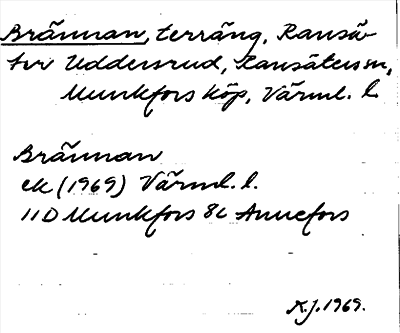 Brännan, terräng, Ransä-
ter Uddersrud, Ransäters sn,
Munkfors köp, Värml. l.
Brännan
ek (1969) Värml. l.
11D Munkfors 8c Annefors
K.J. 1969.